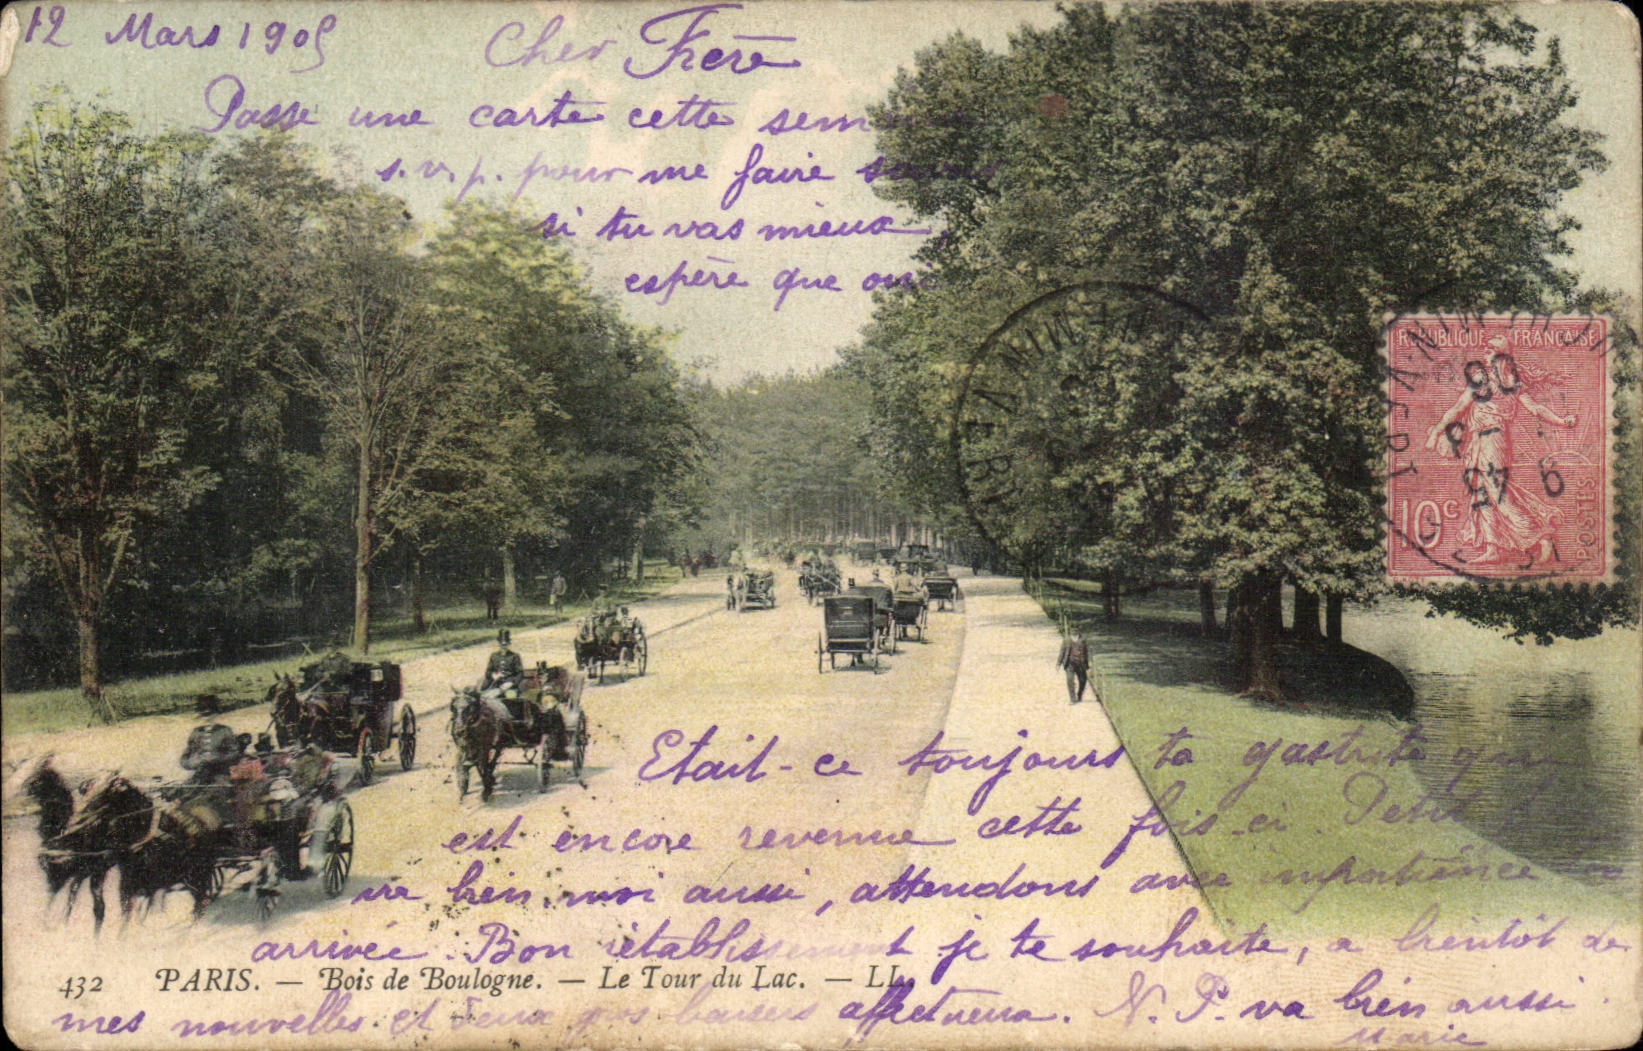 12 Mars 1905 Cher Frère
Passe une carte cette
s.v.p. pour me faire
si tu vas mieux,
espère que oui
REPUBLIQUE FRANÇAISE
10c
POSTES
Etait-ce toujours ta gastrite qui
est encore revenue cette fois-ci. Petit
va bien moi aussi, attendons avec impatience
arrivée. Bon rétablissement je te souhaite, a bientôt de
432 PARIS. — Bois de Boulogne. — Le Tour du Lac. — LL.
mes nouvelles et deux gros baisers affectueux. N. P. va bien aussi.
Marie